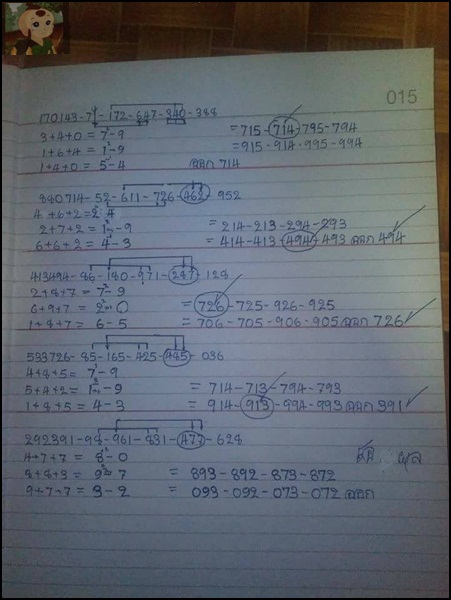 015
170143-7-172-647-340-388
3+4+0 = 7-9 = 715-714-795-794
1+6+4 = 1-9 = 915-914-995-994
1+4+0 = 5-4 ออก 714
880714-52-611-726-462-952
4+6+2=2-4
2+7+2 = 1-9 = 214-213-294-293
6+6+2 = 4-3 = 414-413-494-493 ออก 494
413494-86-180-971-287-128
2+8+7 = 7-9
6+9+7 = 2-0 = 726-725-926-925
1+8+7 = 6-5 = 706-705-906-905 ออก 726
533726-85-165-425-485-036
4+8+5 = 7-9
5+4+2 = 1-9 = 714-713-794-793
1+8+5 = 4-3 = 914-913-994-993 ออก 391
292391-98-961-831-477-628
4+7+7 = 8-0
8+8+3 = 9-7 = 893-892-873-872
9+7+7 = 3-2 = 093-092-073-072 ออก